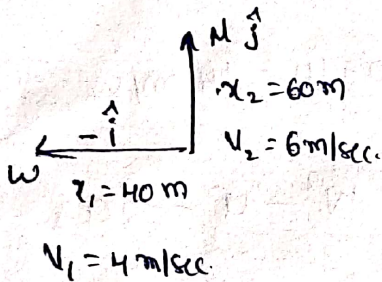 N ĵ
x₂ = 60m
-î
V₂ = 6m/sec.
W
x₁ = 40 m
V₁ = 4 m/sec.